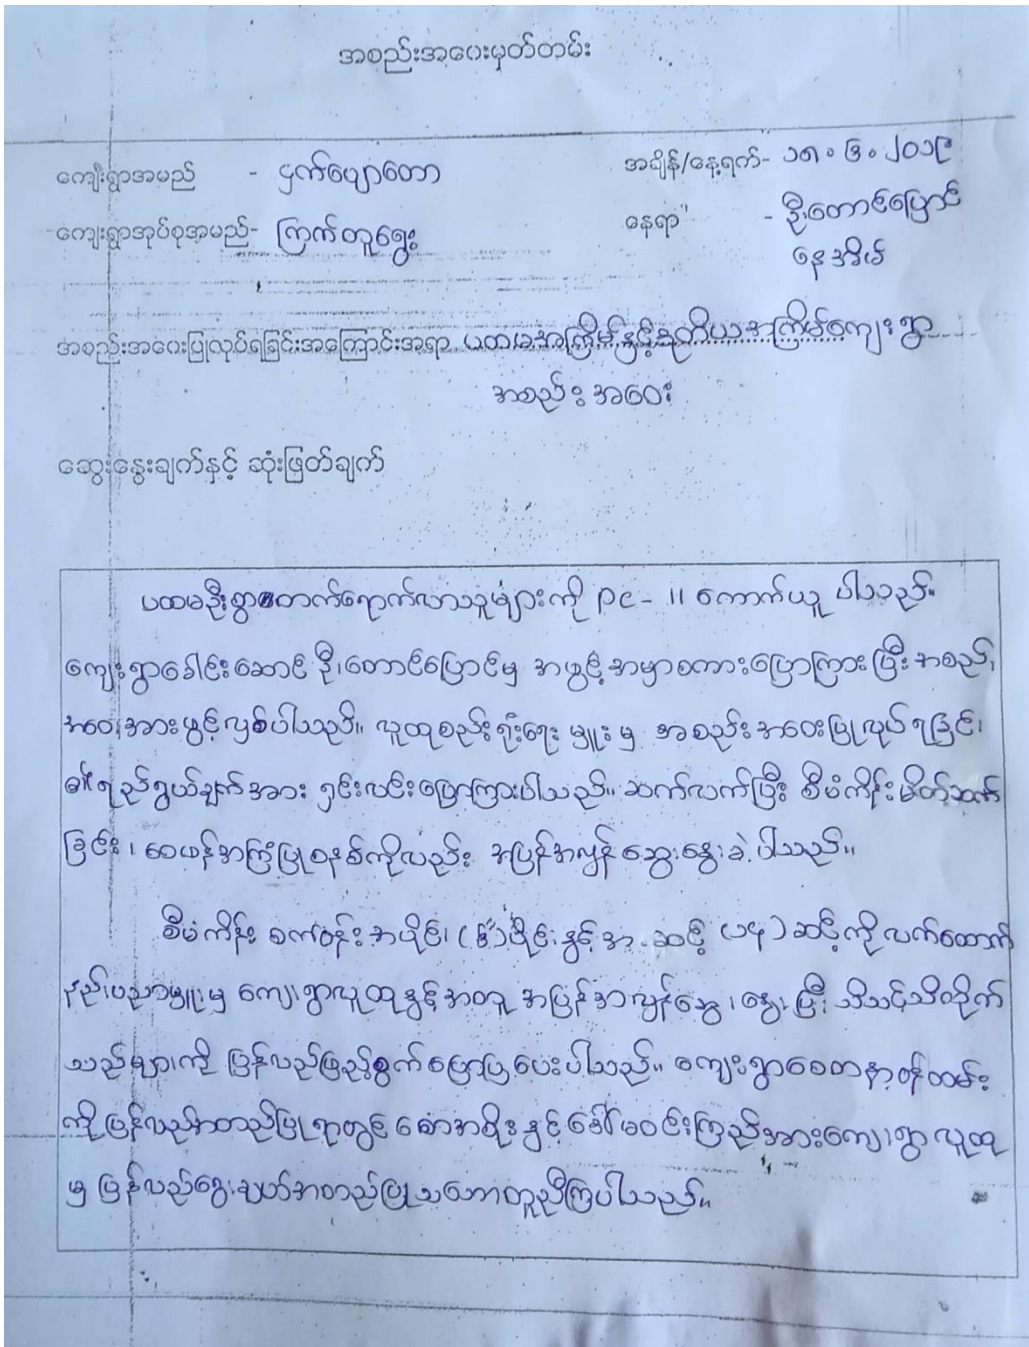 အစည်းအဝေးမှတ်တမ်း
ကျေးရွာအမည် - ငှက်ပျောတော အချိန်/နေ့ရက်- ၁၈.၆.၂၀၁၉
ကျေးရွာအုပ်စုအမည်- ကြက်တူရွေး နေရာ - ဦးတောင်ပြောင်
နေအိမ်
အစည်းအဝေးပြုလုပ်ရခြင်းအကြောင်းအရာ ပထမအကြိမ်နှင့်ဒုတိယအကြိမ်ကျေးရွာ
အစည်းအဝေး
ဆွေးနွေးချက်နှင့် ဆုံးဖြတ်ချက်
ပထမဦးစွာတက်ရောက်လာသူများကို PC- 11 ကောက်ယူ ပါသည်။
ကျေးရွာခေါင်းဆောင် ဦးတောင်ပြောင်မှ အဖွင့်အမှာစကားပြောကြားပြီး အစည်း
အဝေးအားဖွင့်လှစ်ပါသည်။ လူထုစည်းရုံးရေး မှူးမှ အစည်းအဝေးပြုလုပ်ရခြင်း
ရည်ရွယ်ချက်အား ရှင်းလင်းပြောကြားပါသည်။ ဆက်လက်ပြီး စီမံကိန်းမိတ်ဆက်
ခြင်း၊ ဝေဖန်အကြံပြုစနစ်ကိုလည်း အပြန်အလှန်ဆွေးနွေးခဲ့ပါသည်။
စီမံကိန်း စက်ဝန်းအပိုင်း (၆)ပိုင်းနှင့်အဆင့် (၁၅)ဆင့်ကိုလက်ထောက်
နည်းပညာမှူးမှ ကျေးရွာလူထုနှင့်အတူ အပြန်အလှန်ဆွေးနွေးပြီး သိသင့်သိထိုက်
သည်များကို ပြန်လည်ဖြည့်စွက်ပြောပြပေးပါသည်။ ကျေးရွာစေတနာ့ဝန်ထမ်း
ကိုပြန်လည်အတည်ပြုရာတွင် စောအစိုးနှင့်ဒေါ်မဝင်းကြည်အားကျေးရွာလူထု
မှ ပြန်လည်ရွေးချယ်အတည်ပြုသဘောတူညီကြပါသည်။